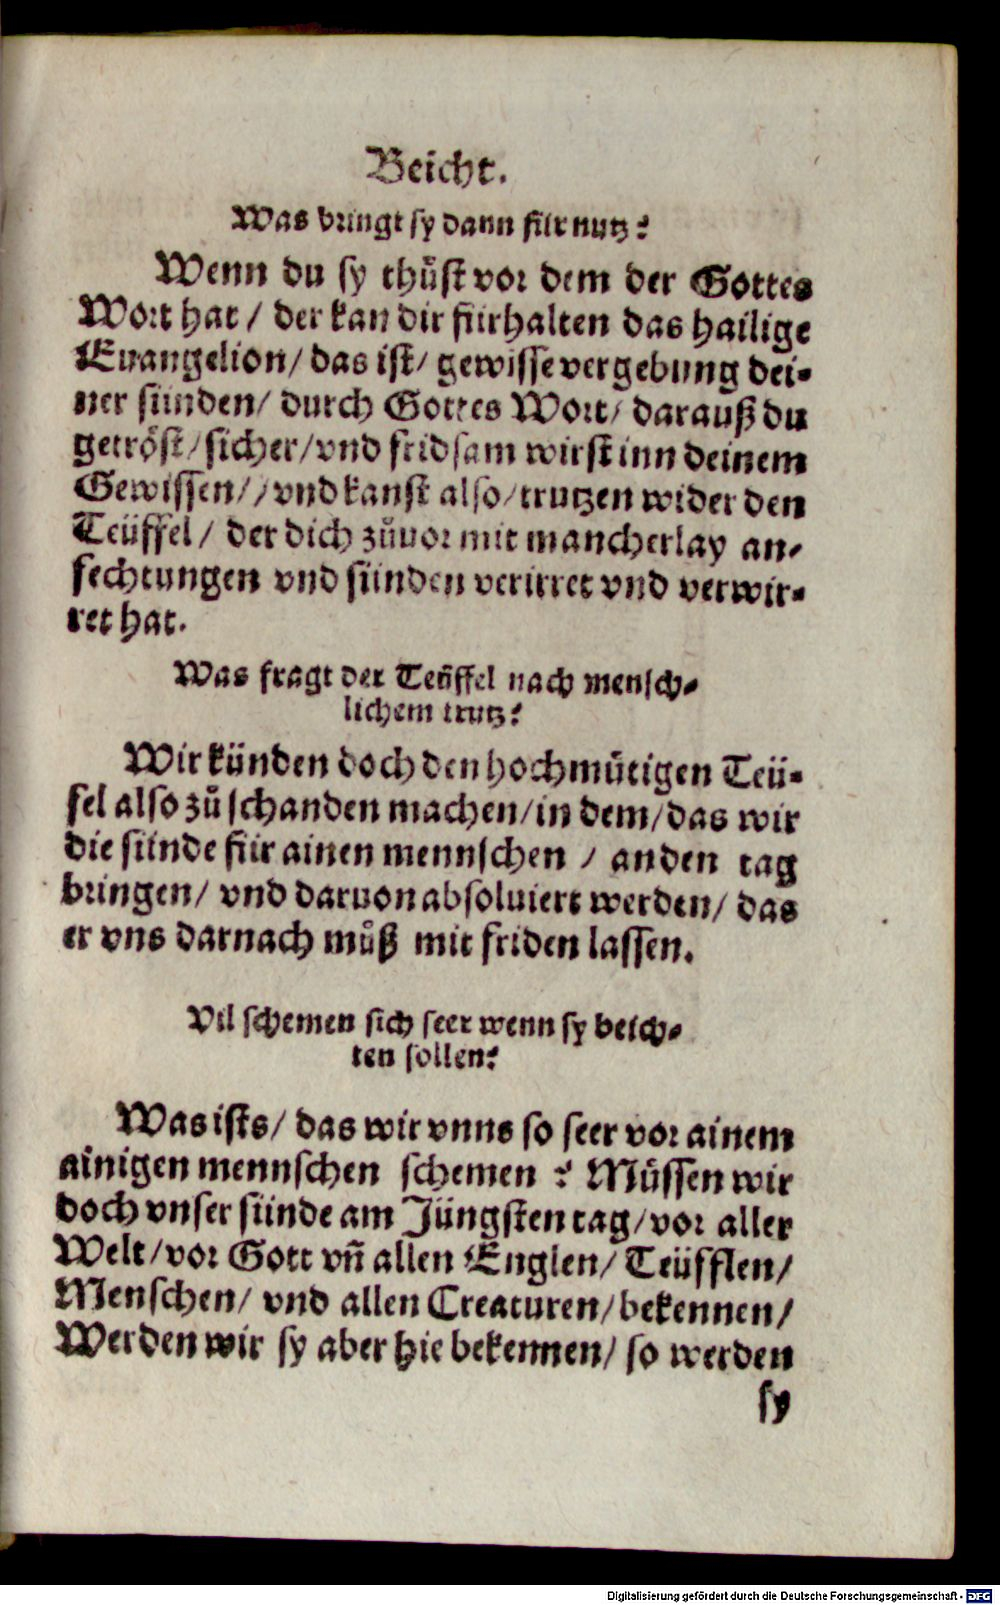 Beicht.
Was bringt sy dann für nutz?
Wenn du sy thůst vor dem der Gottes
Wort hat / der kan dir fürhalten das hailige
Euangelion / das ist / gewisse vergebung dei-
ner sünden / durch Gottes Wort / darauß du
getröst / sicher / vnd fridsam wirst inn deinem
Gewissen / / vnd kanst also / trutzen wider den
Teüffel / der dich zůuor mit mancherlay an-
fechtungen vnd sünden verirret vnd verwir-
ret hat.
Was fragt der Teüffel nach mensch-
lichem trutz?
Wir künden doch den hochmůtigen Teü-
fel also zů schanden machen / in dem / das wir
die sünde für ainen mennschen / an den tag
bringen / vnd daruon absoluiert werden / das
er vns darnach můß mit friden lassen.
Vil schemen sich seer wenn sy beich-
ten sollen?
Was ists / das wir vnns so seer vor ainem
ainigen mennschen schemen ? Müssen wir
doch vnser sünde am Jüngsten tag / vor aller
Welt / vor Gott vñ allen Englen / Teüfflen /
Menschen / vnd allen Creaturen / bekennen /
Werden wir sy aber hie bekennen / so werden
sy
Digitalisierung gefördert durch die Deutsche Forschungsgemeinschaft - DFG